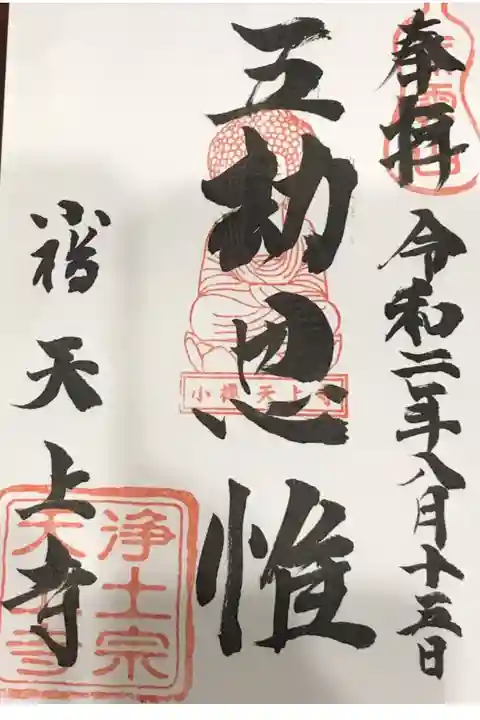 奉拝 令和二年八月十五日
五劫思惟
小樽天上寺
小樽 天上寺
浄土宗
天上寺